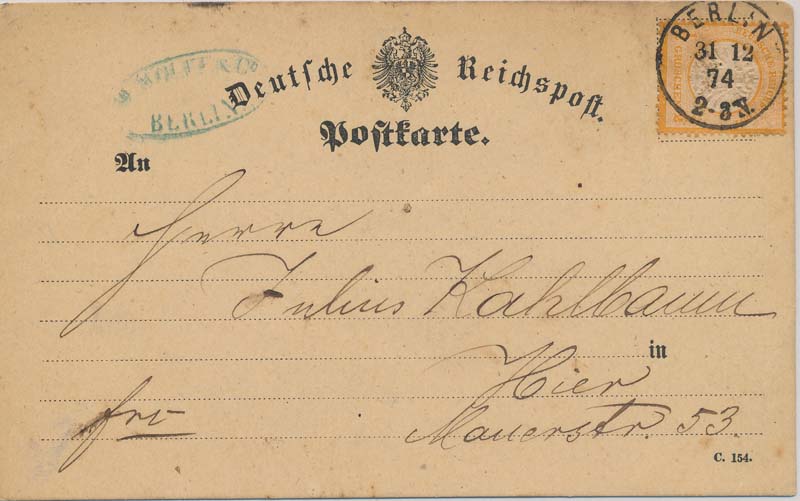 BERLIN
31 12
74
2-3 N.
& Co
BERLIN
Deutsche Reichspost.
Postkarte.
An
Herrn
Julius Kahlbaum
in
Hier
fro
Mauerstr. 53.
C. 154.